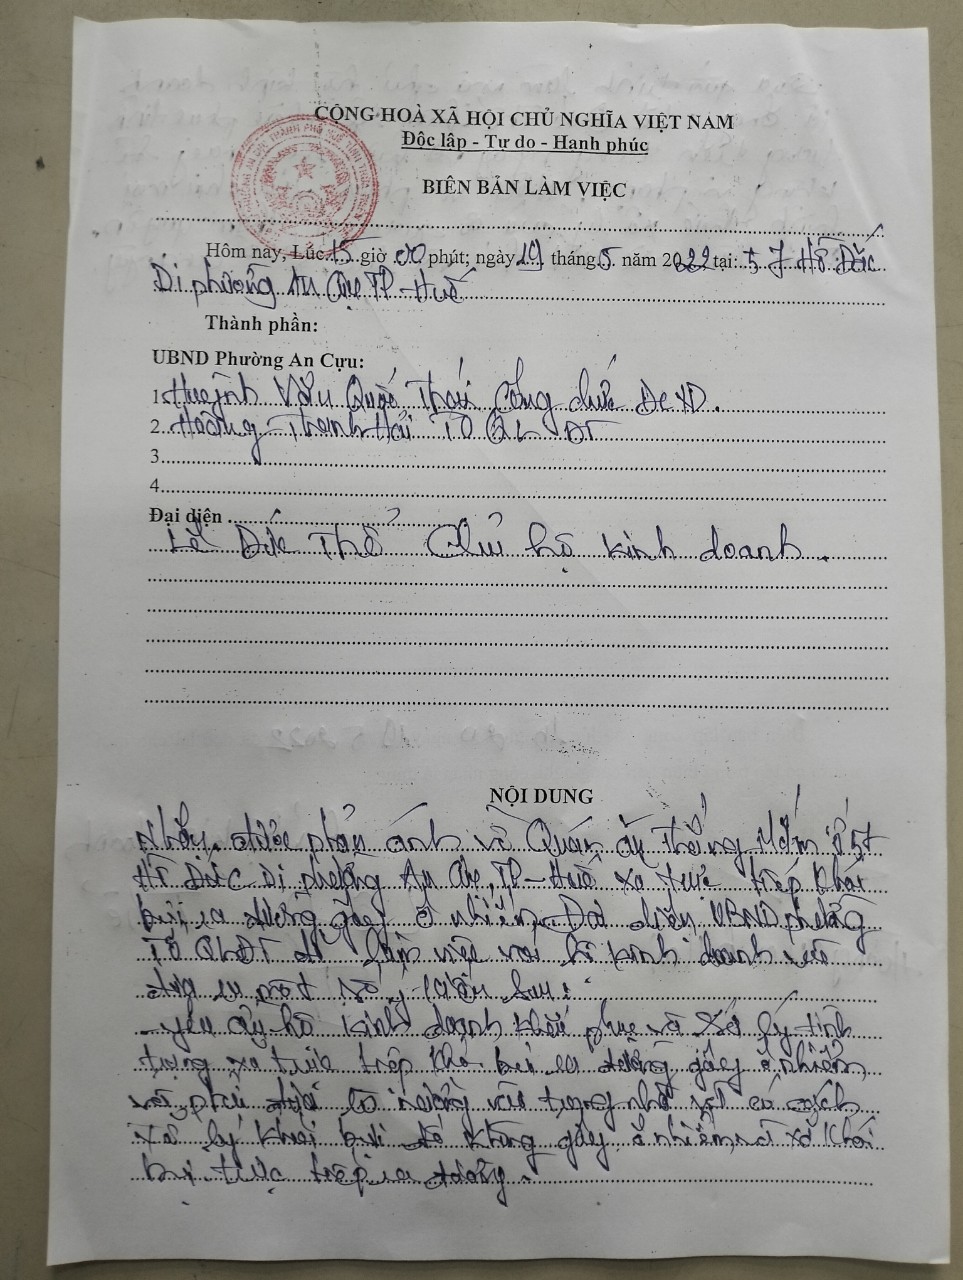 CỘNG HOÀ XÃ HỘI CHỦ NGHĨA VIỆT NAM
Độc lập - Tự do - Hạnh phúc
BIÊN BẢN LÀM VIỆC
Hôm nay, Lúc 15 giờ 00 phút; ngày 19 tháng 5 năm 2022 tại: 57 Hồ Đắc
Di phường An Cựu TP-Huế
Thành phần:
UBND Phường An Cựu:
1. Huỳnh Văn Quốc Thái Công chức ĐCXD.
2. Hoàng Thanh Hải Tổ QLĐT
3.
4.
Đại diện
Lê Đức Thổ Chủ hộ kinh doanh.
NỘI DUNG
Nhận được phản ánh về Quán ăn Thống Mâm ở 57
Hồ Đắc Di phường An Cựu, TP-Huế xả trực tiếp khói
bụi ra đường gây ô nhiễm. Đại diện UBND phường
Tổ QLĐT để làm việc với hộ kinh doanh
một số sau:
- yêu cầu hộ kinh doanh khắc phục và xử lý tình
trạng xả trực tiếp khói bụi ra đường gây ô nhiễm
phải lò nướng trong nhà và có cách
xử lý khói bụi để không gây ô nhiễm và xả khói
bụi trực tiếp ra đường.